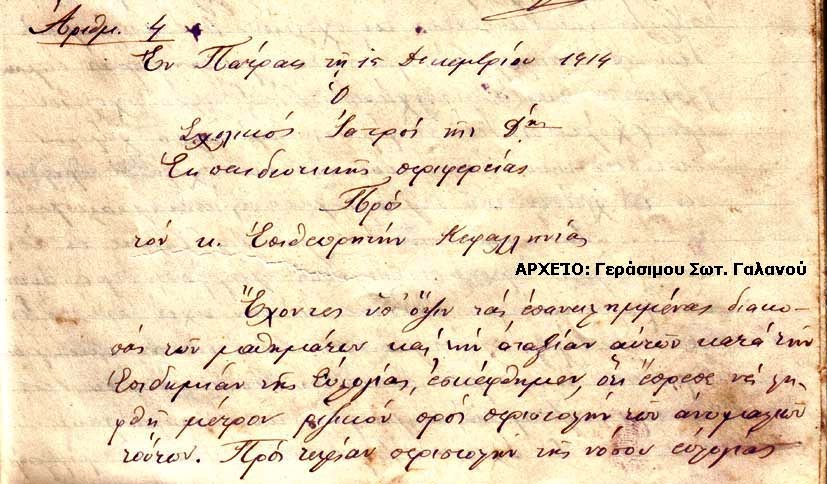 Αριθμ. 4
Εν Πάτραις τη 15 Δεκεμβρίου 1914
Ο
Σχολικός Ιατρός της Δης
Εκπαιδευτικής περιφερείας
Προς
τον κ. Επιθεωρητήν Κεφαλληνίας
ΑΡΧΕΙΟ: Γεράσιμου Σωτ. Γαλανού
Έχοντες υπ' όψιν τας επανειλημμένας διακο-
πάς των μαθημάτων και την αταξίαν αυτών κατά την
επιδημίαν της ευλογίας, εσκέφθημεν, ότι έπρεπε να λη-
φθή μέτρον ριζικόν προς περιστολήν των ανωμαλιών
τούτων. Προς τελείαν περιστολήν της νόσου ευλογιάς